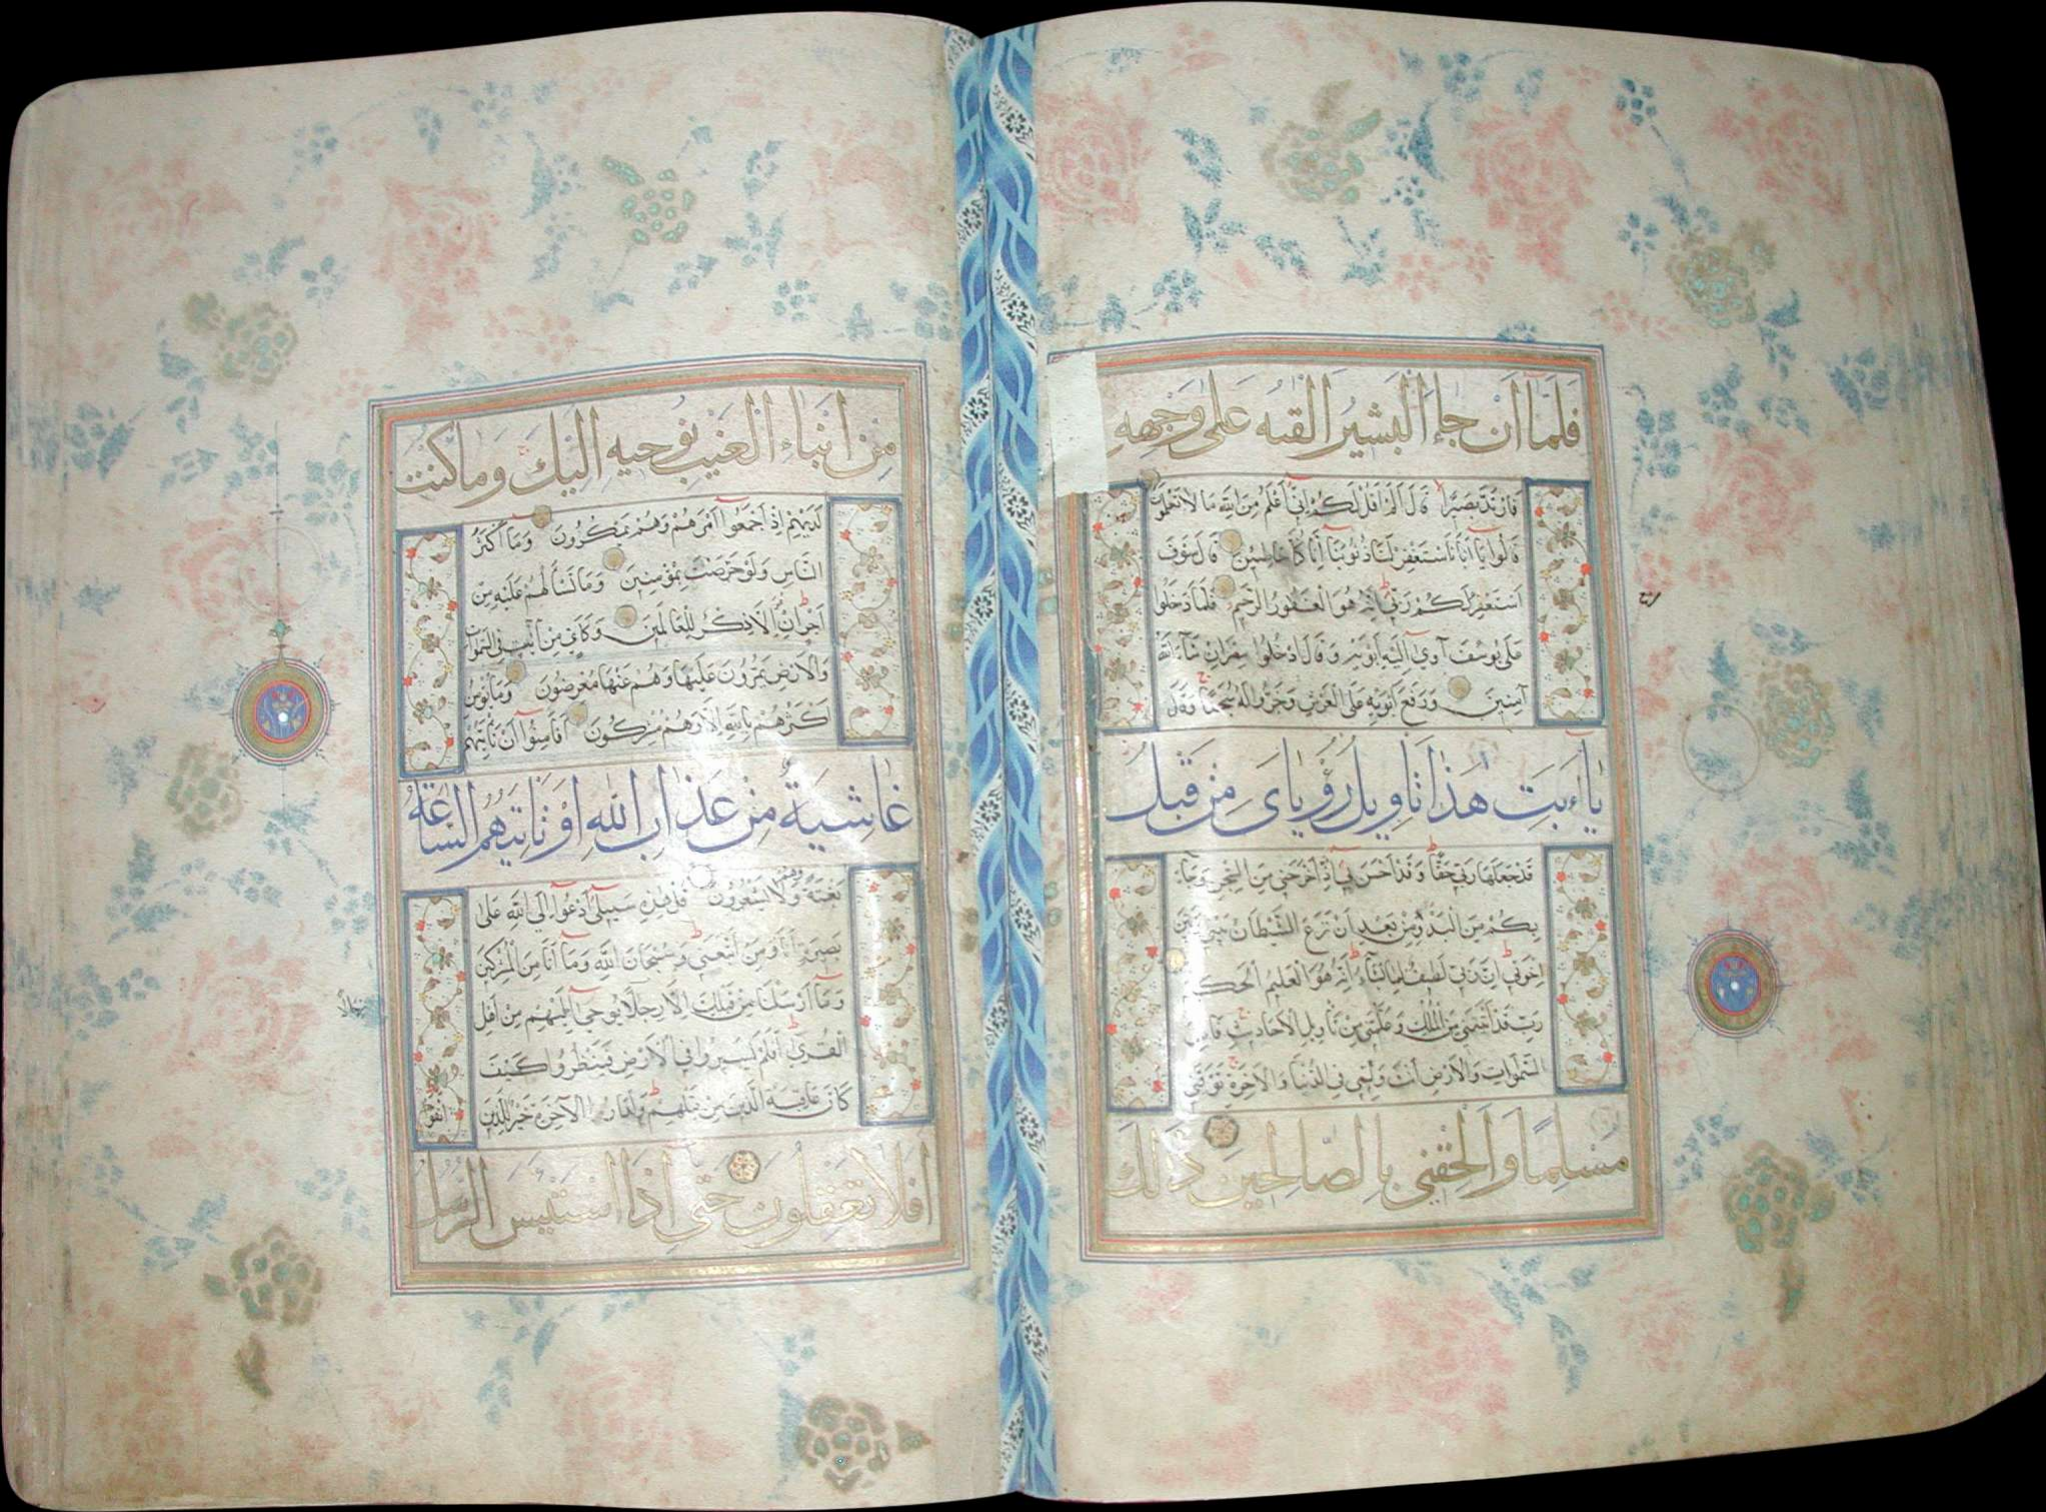 فَلَمَّا أَنْ جَاءَ الْبَشِيرُ أَلْقٰهُ عَلٰى وَجْهِهِ
فَارْتَدَّ بَصِيرًا قَالَ أَلَمْ أَقُلْ لَكُمْ إِنِّي أَعْلَمُ مِنَ اللّٰهِ مَا لَا تَعْلَمُونَ
قَالُوا يَا أَبَانَا اسْتَغْفِرْ لَنَا ذُنُوبَنَا إِنَّا كُنَّا خَاطِئِينَ قَالَ سَوْفَ
أَسْتَغْفِرُ لَكُمْ رَبِّي إِنَّهُ هُوَ الْغَفُورُ الرَّحِيمُ فَلَمَّا دَخَلُوا
عَلٰى يُوسُفَ آوٰى إِلَيْهِ أَبَوَيْهِ وَقَالَ ادْخُلُوا مِصْرَ إِنْ شَاءَ اللّٰهُ
آمِنِينَ وَرَفَعَ أَبَوَيْهِ عَلَى الْعَرْشِ وَخَرُّوا لَهُ سُجَّدًا وَقَالَ
يَا أَبَتِ هٰذَا تَاوِيلُ رُؤْيَايَ مِنْ قَبْلُ
قَدْ جَعَلَهَا رَبِّي حَقًّا وَقَدْ أَحْسَنَ بِي إِذْ أَخْرَجَنِي مِنَ السِّجْنِ وَجَاءَ
بِكُمْ مِنَ الْبَدْوِ مِنْ بَعْدِ أَنْ نَزَغَ الشَّيْطَانُ بَيْنِي وَبَيْنَ
إِخْوَتِي إِنَّ رَبِّي لَطِيفٌ لِمَا يَشَاءُ إِنَّهُ هُوَ الْعَلِيمُ الْحَكِيمُ
رَبِّ قَدْ آتَيْتَنِي مِنَ الْمُلْكِ وَعَلَّمْتَنِي مِنْ تَاوِيلِ الْأَحَادِيثِ فَاطِرَ
السَّمٰوَاتِ وَالْأَرْضِ أَنْتَ وَلِيِّي فِي الدُّنْيَا وَالْآخِرَةِ تَوَفَّنِي
مُسْلِمًا وَأَلْحِقْنِي بِالصَّالِحِينَ ذٰلِكَ
مِنْ أَنْبَاءِ الْغَيْبِ نُوحِيهِ إِلَيْكَ وَمَا كُنْتَ
لَدَيْهِمْ إِذْ أَجْمَعُوا أَمْرَهُمْ وَهُمْ يَمْكُرُونَ وَمَا أَكْثَرُ
النَّاسِ وَلَوْ حَرَصْتَ بِمُؤْمِنِينَ وَمَا تَسْأَلُهُمْ عَلَيْهِ مِنْ
أَجْرٍ إِنْ هُوَ إِلَّا ذِكْرٌ لِلْعَالَمِينَ وَكَأَيِّنْ مِنْ آيَةٍ فِي السَّمٰوَاتِ
وَالْأَرْضِ يَمُرُّونَ عَلَيْهَا وَهُمْ عَنْهَا مُعْرِضُونَ وَمَا يُؤْمِنُ
أَكْثَرُهُمْ بِاللّٰهِ إِلَّا وَهُمْ مُشْرِكُونَ أَفَأَمِنُوا أَنْ تَأْتِيَهُمْ
غَاشِيَةٌ مِنْ عَذَابِ اللّٰهِ أَوْ تَاتِيَهُمُ السَّاعَةُ
بَغْتَةً وَهُمْ لَا يَشْعُرُونَ قُلْ هٰذِهِ سَبِيلِي أَدْعُوا إِلَى اللّٰهِ عَلٰى
بَصِيرَةٍ أَنَا وَمَنِ اتَّبَعَنِي وَسُبْحَانَ اللّٰهِ وَمَا أَنَا مِنَ الْمُشْرِكِينَ
وَمَا أَرْسَلْنَا مِنْ قَبْلِكَ إِلَّا رِجَالًا يُوحٰى إِلَيْهِمْ مِنْ أَهْلِ
الْقُرٰى أَفَلَمْ يَسِيرُوا فِي الْأَرْضِ فَيَنْظُرُوا كَيْفَ
كَانَ عَاقِبَةُ الَّذِينَ مِنْ قَبْلِهِمْ وَلَدَارُ الْآخِرَةِ خَيْرٌ لِلَّذِينَ
اتَّقَوْا
أَفَلَا تَعْقِلُونَ حَتّٰى إِذَا اسْتَيْئَسَ الرُّسُلُ